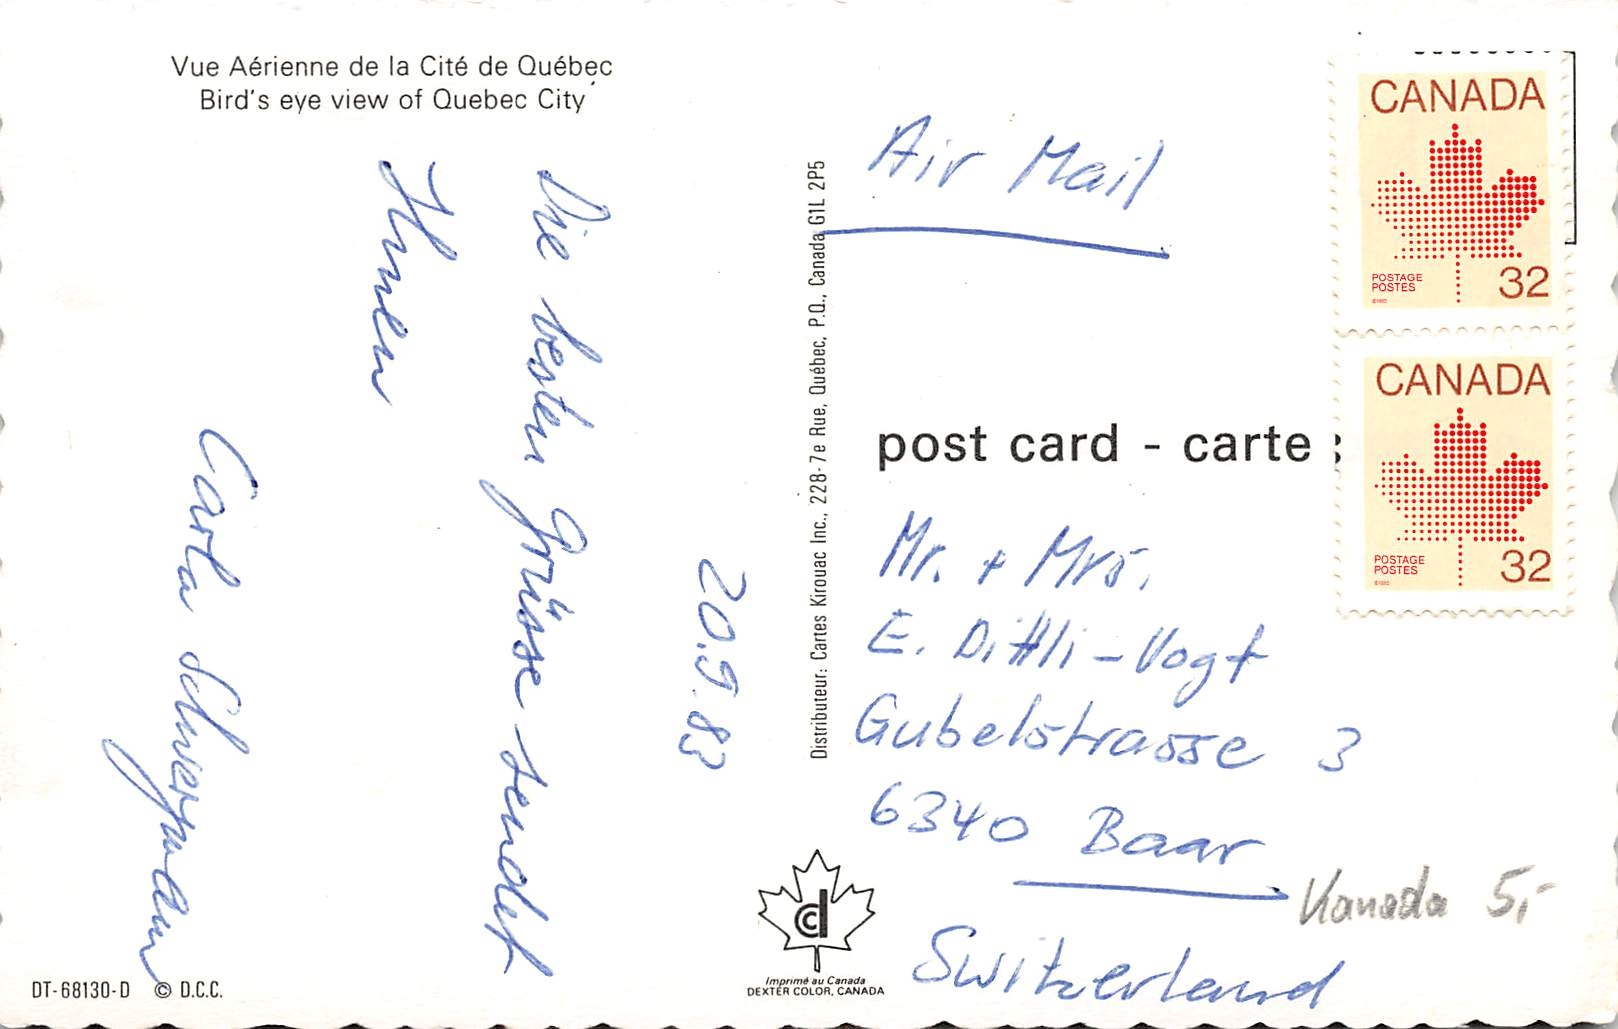 Vue Aérienne de la Cité de Québec
Bird's eye view of Quebec City
20.9.83
Die besten Grüsse sendet
Ihnen
Carla
DT-68130-D © D.C.C.
Distributeur: Cartes Kirouac Inc., 228-7e Rue, Québec, P.Q., Canada G1L 2P5
Imprimé au Canada
DEXTER COLOR, CANADA
Air Mail
CANADA
POSTAGE
POSTES
32
CANADA
POSTAGE
POSTES
32
post card - carte
Mr. + Mrs.
E. Dittli-Vogt
Gubelstrasse 3
6340 Baar
Switzerland
Kanada 5,-